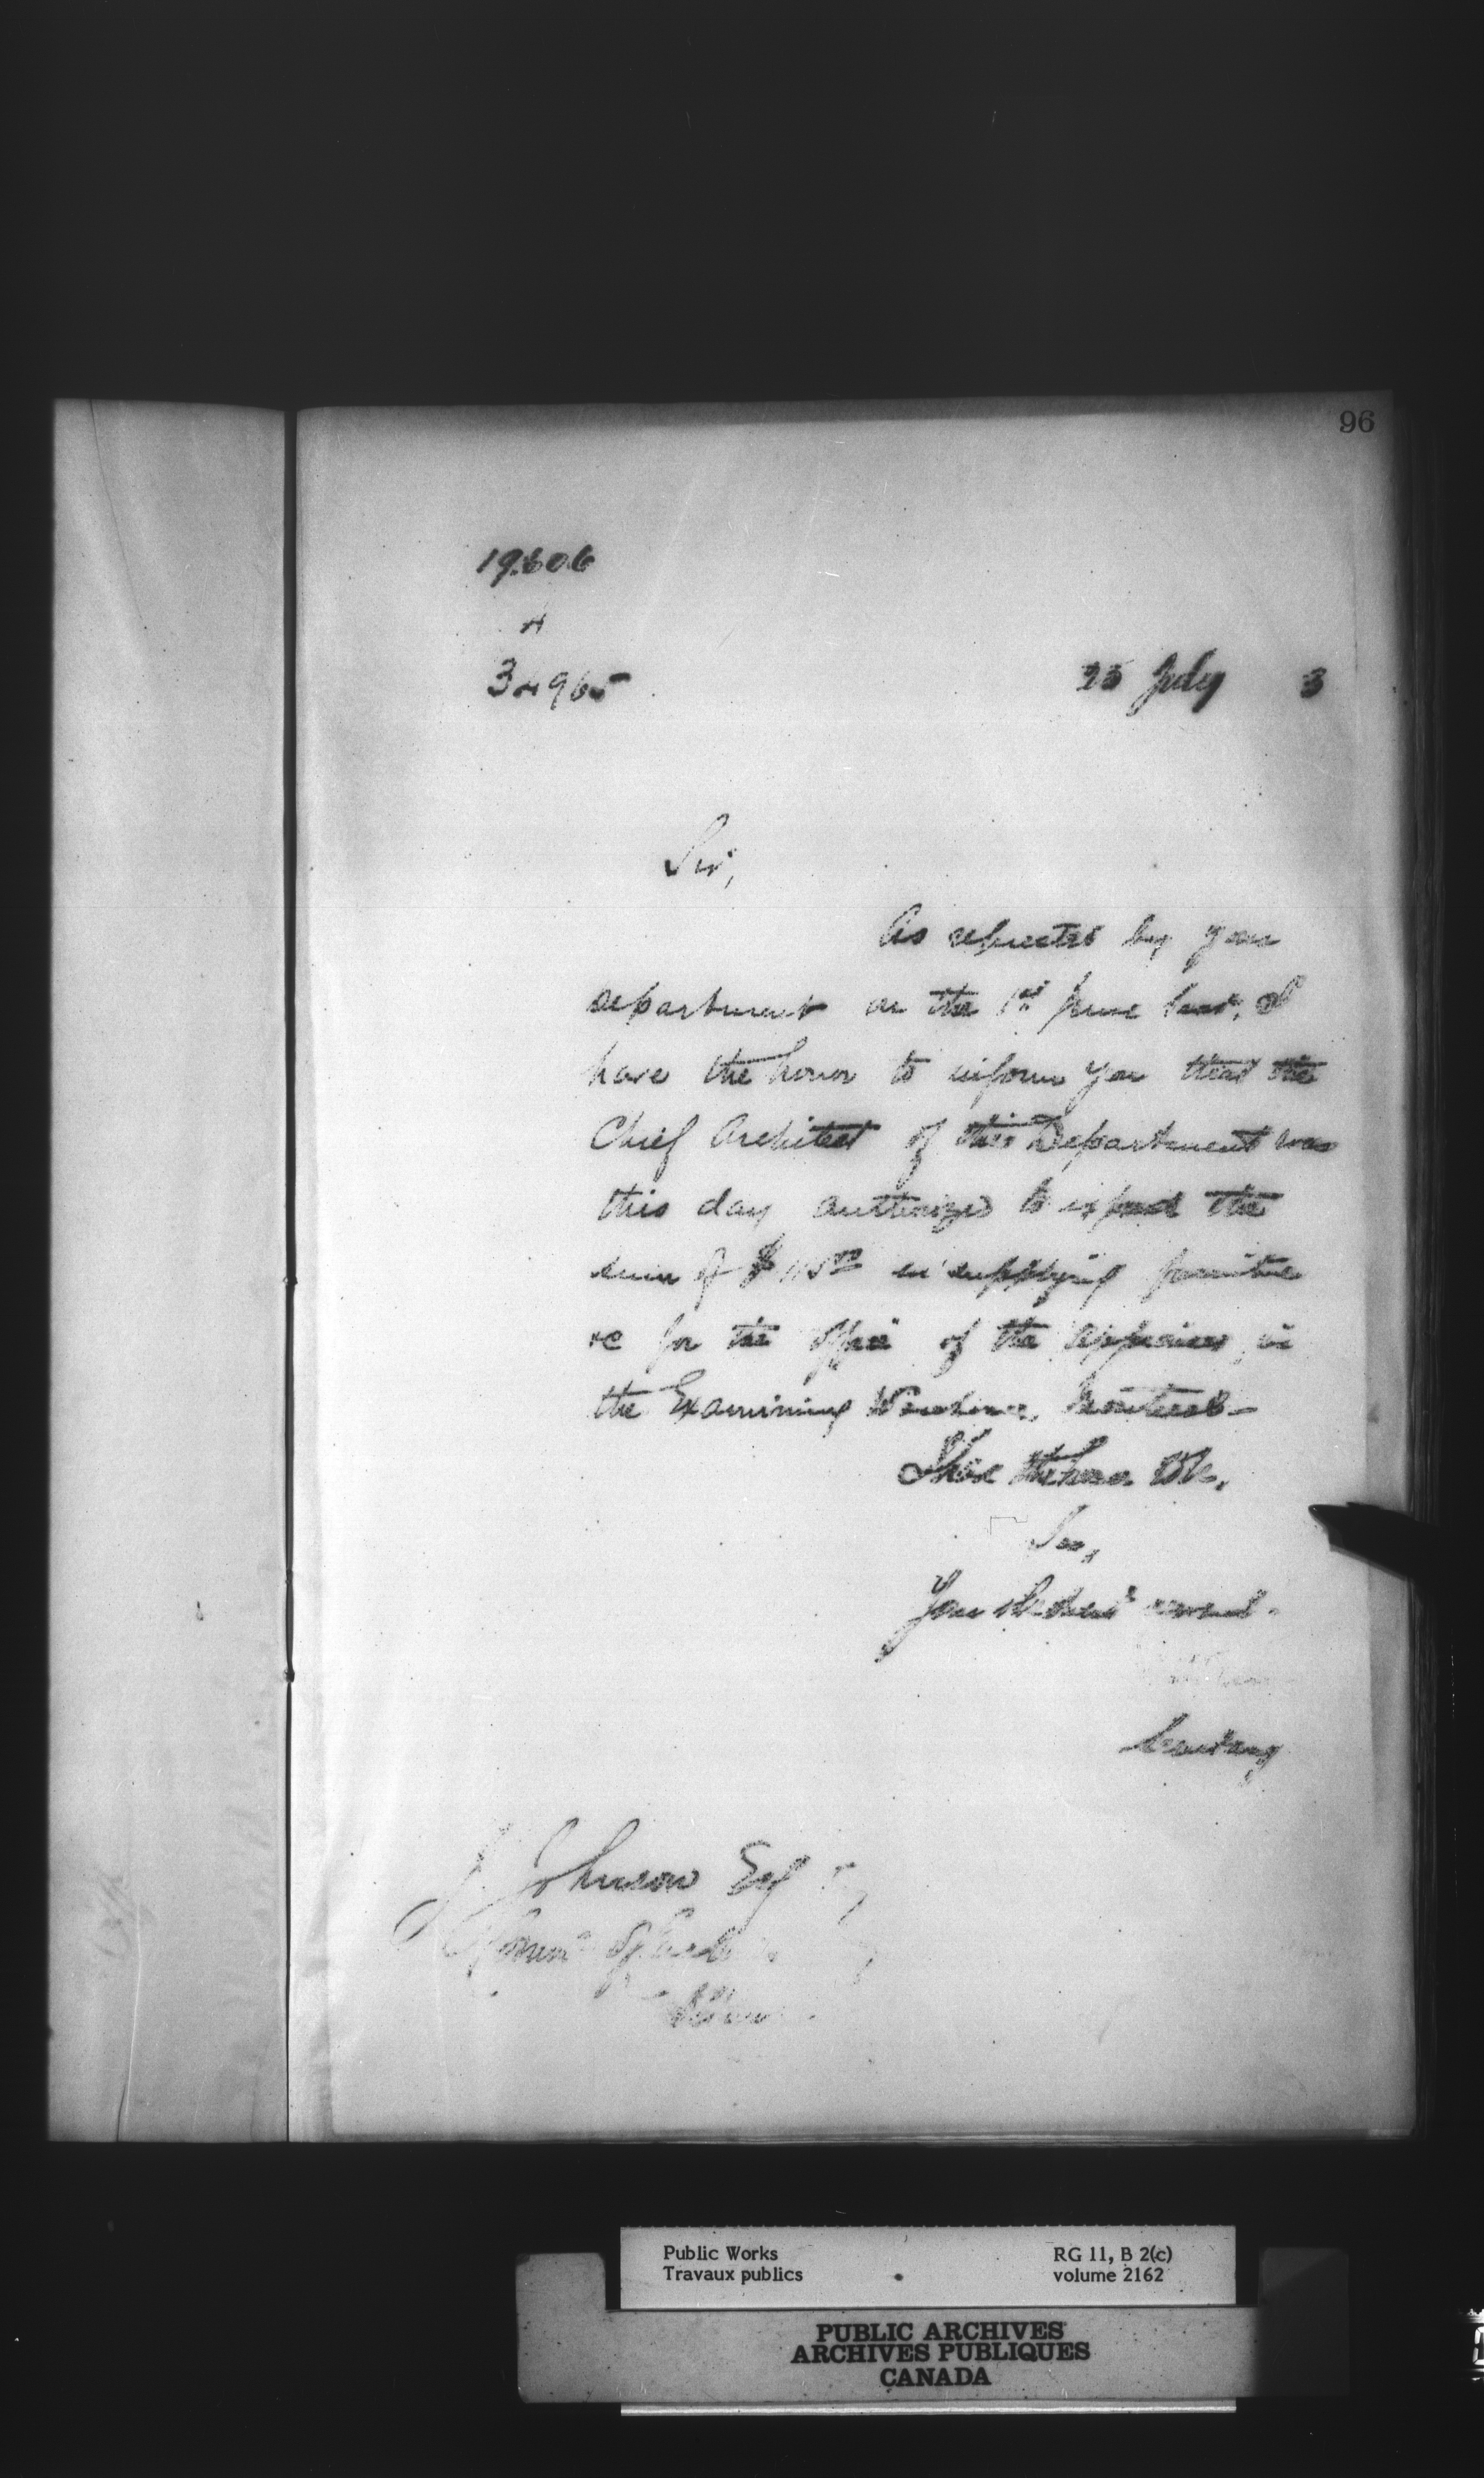 96
19.606
A
34965
25 July 3
Sir,
As requested by your
department on the 1st June last, I
have the honor to inform you that the
Chief Architect of this Department was
this day authorized to expend the
sum of $ 115 00 in supplying furniture
&c for the office of the Appraiser, in
the Examining Warehouse, Montreal —
I have the honor to be,
Sir,
Your obedient servant.
Secretary
J. Johnson Esq
Comm of
Public Works
Travaux publics
RG 11, B 2(c)
volume 2162
PUBLIC ARCHIVES
ARCHIVES PUBLIQUES
CANADA